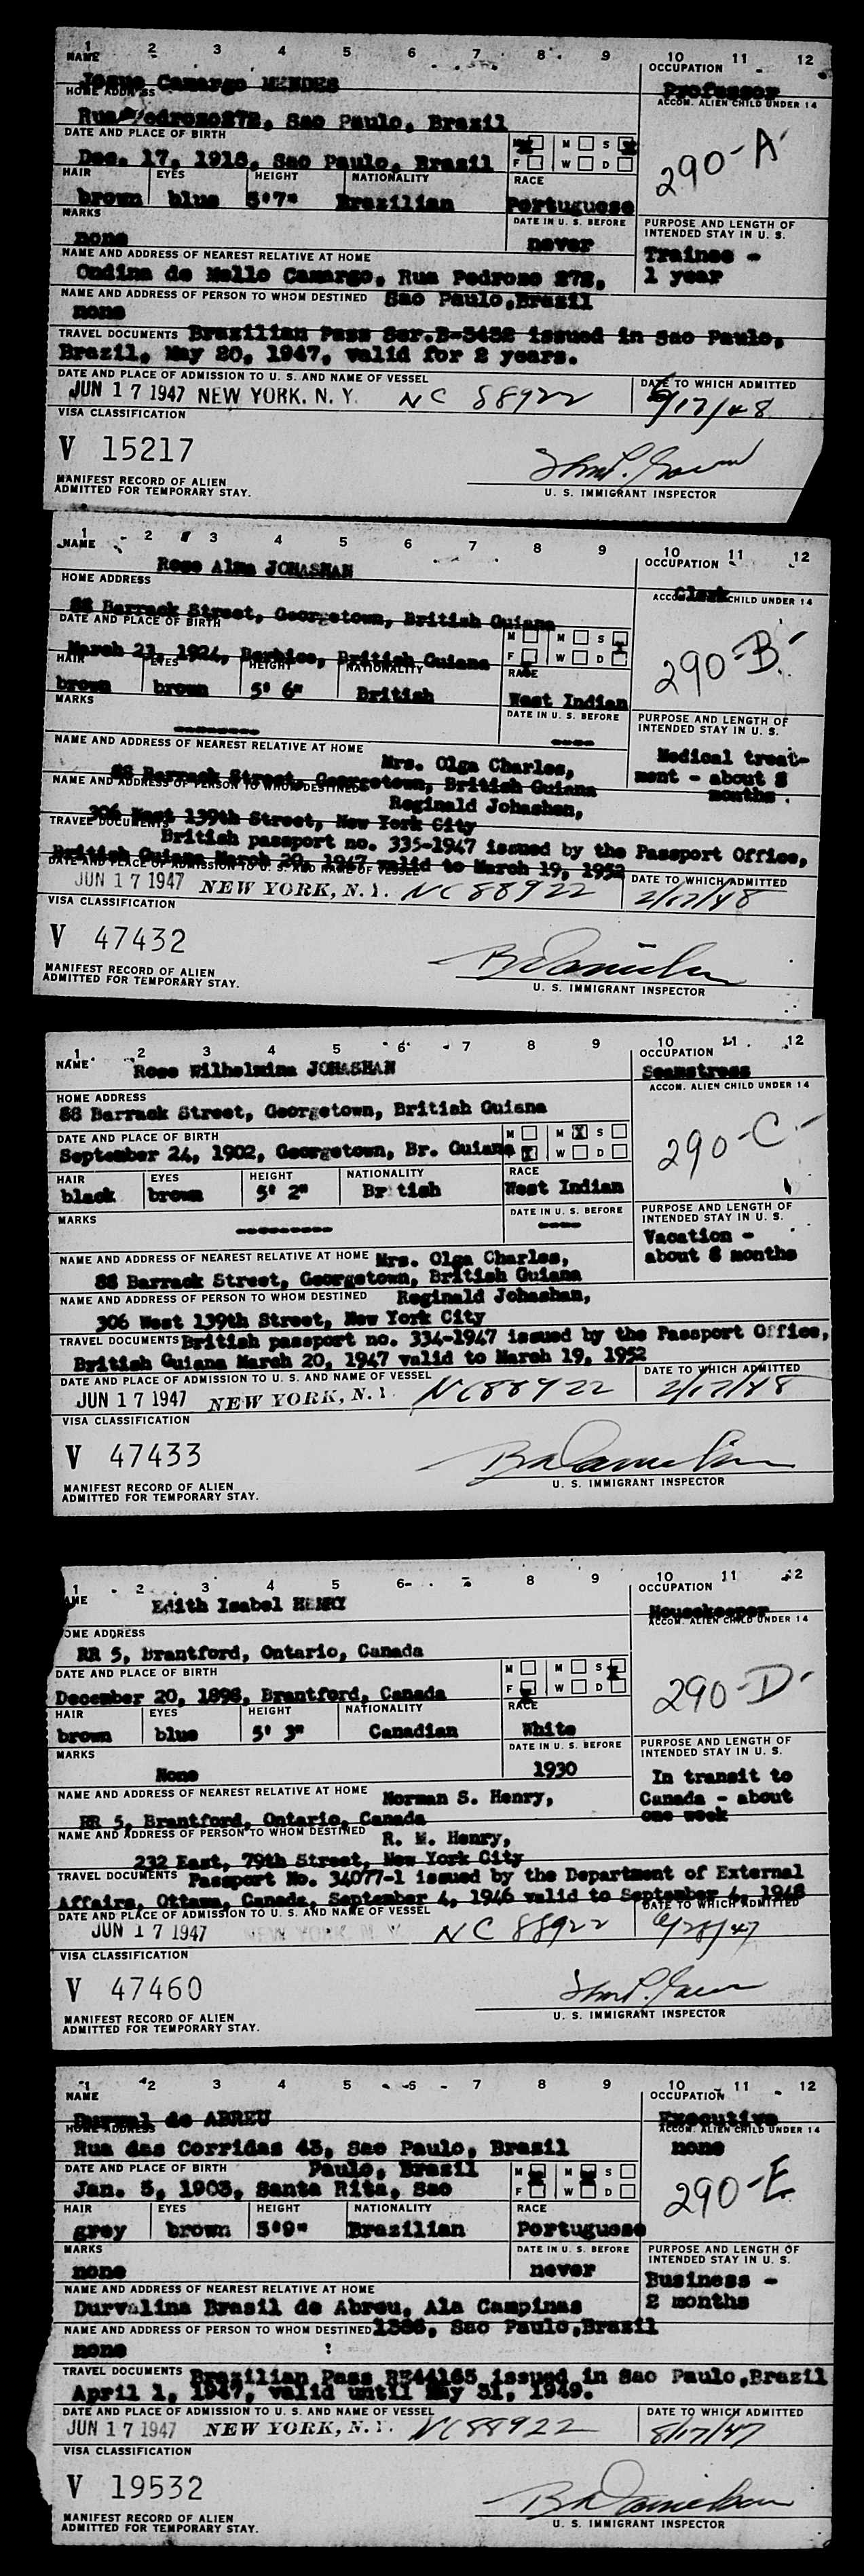 1 2 3 4 5 6 7 8 9 10 11 12
NAME OCCUPATION
Josue Camargo MENDES Professor
HOME ADDRESS ACCOM. ALIEN CHILD UNDER 14
Rua Pedroso 272, Sao Paulo, Brazil
DATE AND PLACE OF BIRTH M M S
Dec. 17, 1918, Sao Paulo, Brasil F W D
290-A
HAIR EYES HEIGHT NATIONALITY RACE
brown blue 5'7" Brazilian Portuguese
MARKS DATE IN U. S. BEFORE PURPOSE AND LENGTH OF INTENDED STAY IN U. S.
none never
NAME AND ADDRESS OF NEAREST RELATIVE AT HOME Trainee -
Ondina de Mello Camargo, Rua Pedroso 272, 1 year
NAME AND ADDRESS OF PERSON TO WHOM DESTINED Sao Paulo, Brazil
none
TRAVEL DOCUMENTS Brazilian Pass Ser.B-3432 issued in Sao Paulo,
Brazil, May 20, 1947, valid for 2 years.
DATE AND PLACE OF ADMISSION TO U. S. AND NAME OF VESSEL DATE TO WHICH ADMITTED
JUN 17 1947 NEW YORK. N. Y. NC 88922 6/17/48
VISA CLASSIFICATION
V 15217
MANIFEST RECORD OF ALIEN
ADMITTED FOR TEMPORARY STAY. U. S. IMMIGRANT INSPECTOR
1 2 3 4 5 6 7 8 9 10 11 12
NAME OCCUPATION
Rose Alma JOHASHAN
HOME ADDRESS Clerk
ACCOM. ALIEN CHILD UNDER 14
88 Barrack Street, Georgetown, British Guiana
DATE AND PLACE OF BIRTH M M S
March 23, 1924, Berbice, British Guiana F W D
290-B-
HAIR EYES HEIGHT NATIONALITY RACE
brown brown 5' 6" British West Indian
MARKS DATE IN U. S. BEFORE PURPOSE AND LENGTH OF INTENDED STAY IN U. S.
--------- ----
NAME AND ADDRESS OF NEAREST RELATIVE AT HOME Mrs. Olga Charles, Medical treat-
88 Barrack Street, Georgetown, British Guiana ment - about 8
NAME AND ADDRESS OF PERSON TO WHOM DESTINED months.
Reginald Johashan,
306 West 139th Street, New York City
TRAVEL DOCUMENTS
British passport no. 335-1947 issued by the Passport Office,
British Guiana March 20, 1947 valid to March 19, 1952
DATE AND PLACE OF ADMISSION TO U. S. AND NAME OF VESSEL DATE TO WHICH ADMITTED
JUN 17 1947 NEW YORK, N. Y. NC 88922 2/17/48
VISA CLASSIFICATION
V 47432
MANIFEST RECORD OF ALIEN
ADMITTED FOR TEMPORARY STAY. U. S. IMMIGRANT INSPECTOR
1 2 3 4 5 6 7 8 9 10 11 12
NAME Rose Wilhelmina JOHASHAN OCCUPATION
Seamstress
HOME ADDRESS ACCOM. ALIEN CHILD UNDER 14
88 Barrack Street, Georgetown, British Guiana
DATE AND PLACE OF BIRTH M M X S
September 24, 1902, Georgetown, Br. Guiana F X W D
290-C-
HAIR EYES HEIGHT NATIONALITY RACE
black brown 5' 2" Br tish West Indian
MARKS DATE IN U. S. BEFORE PURPOSE AND LENGTH OF INTENDED STAY IN U. S.
---------- ---- Vacation -
NAME AND ADDRESS OF NEAREST RELATIVE AT HOME Mrs. Olga Charles, about 8 months
88 Barrack Street, Georgetown, British Guiana
NAME AND ADDRESS OF PERSON TO WHOM DESTINED Reginald Johashan,
306 West 139th Street, New York City
TRAVEL DOCUMENTS British passport no. 334-1947 issued by the Passport Office,
British Guiana March 20, 1947 valid to March 19, 1952
DATE AND PLACE OF ADMISSION TO U. S. AND NAME OF VESSEL DATE TO WHICH ADMITTED
JUN 17 1947 NEW YORK, N. Y. NC 88922 2/17/48
VISA CLASSIFICATION
V 47433
MANIFEST RECORD OF ALIEN
ADMITTED FOR TEMPORARY STAY. U. S. IMMIGRANT INSPECTOR
1 2 3 4 5 6 7 8 9 10 11 12
AME OCCUPATION
Edith Isabel HENRY Housekeeper
OME ADDRESS ACCOM. ALIEN CHILD UNDER 14
RR 5, Brantford, Ontario, Canada
DATE AND PLACE OF BIRTH M M S
December 20, 1898, Brantford, Canada F W D
290-D-
HAIR EYES HEIGHT NATIONALITY RACE
brown blue 5' 3" Canadian White
MARKS DATE IN U. S. BEFORE PURPOSE AND LENGTH OF INTENDED STAY IN U. S.
None 1930 In transit to
NAME AND ADDRESS OF NEAREST RELATIVE AT HOME Norman S. Henry, Canada - about
RR 5, Brantford, Ontario, Canada one week
NAME AND ADDRESS OF PERSON TO WHOM DESTINED R. M. Henry,
232 East, 79th Street, New York City
TRAVEL DOCUMENTS Passport No. 34077-1 issued by the Department of External
Affairs, Ottawa, Canada, September 4, 1946 valid to September 4, 1948
DATE AND PLACE OF ADMISSION TO U. S. AND NAME OF VESSEL DATE TO WHICH ADMITTED
JUN 17 1947 NEW YORK N. Y. NC 88922 6/28/47
VISA CLASSIFICATION
V 47460
MANIFEST RECORD OF ALIEN
ADMITTED FOR TEMPORARY STAY. U. S. IMMIGRANT INSPECTOR
1 2 3 4 5 6 7 8 9 10 11 12
NAME OCCUPATION
Durval de ABREU Executive
HOME ADDRESS ACCOM. ALIEN CHILD UNDER 14
Rua das Corridas 43, Sao Paulo, Brazil none
DATE AND PLACE OF BIRTH Paulo, Brazil M M S
Jan. 5, 1903, Santa Rita, Sao F W D
290-E
HAIR EYES HEIGHT NATIONALITY RACE
grey brown 5'9" Brazilian Portuguese
MARKS DATE IN U. S. BEFORE PURPOSE AND LENGTH OF INTENDED STAY IN U. S.
none never
NAME AND ADDRESS OF NEAREST RELATIVE AT HOME Business -
Durvalina Brasil de Abreu, Ala Campinas 2 months
NAME AND ADDRESS OF PERSON TO WHOM DESTINED 1386, Sao Paulo, Brazil
none :
TRAVEL DOCUMENTS Brazilian Pass RE44165 issued in Sao Paulo, Brazil
April 1, 1947, valid until May 31, 1949.
DATE AND PLACE OF ADMISSION TO U. S. AND NAME OF VESSEL DATE TO WHICH ADMITTED
JUN 17 1947 NEW YORK, N. Y. NC 88922 8/17/47
VISA CLASSIFICATION
V 19532
MANIFEST RECORD OF ALIEN
ADMITTED FOR TEMPORARY STAY. U. S. IMMIGRANT INSPECTOR